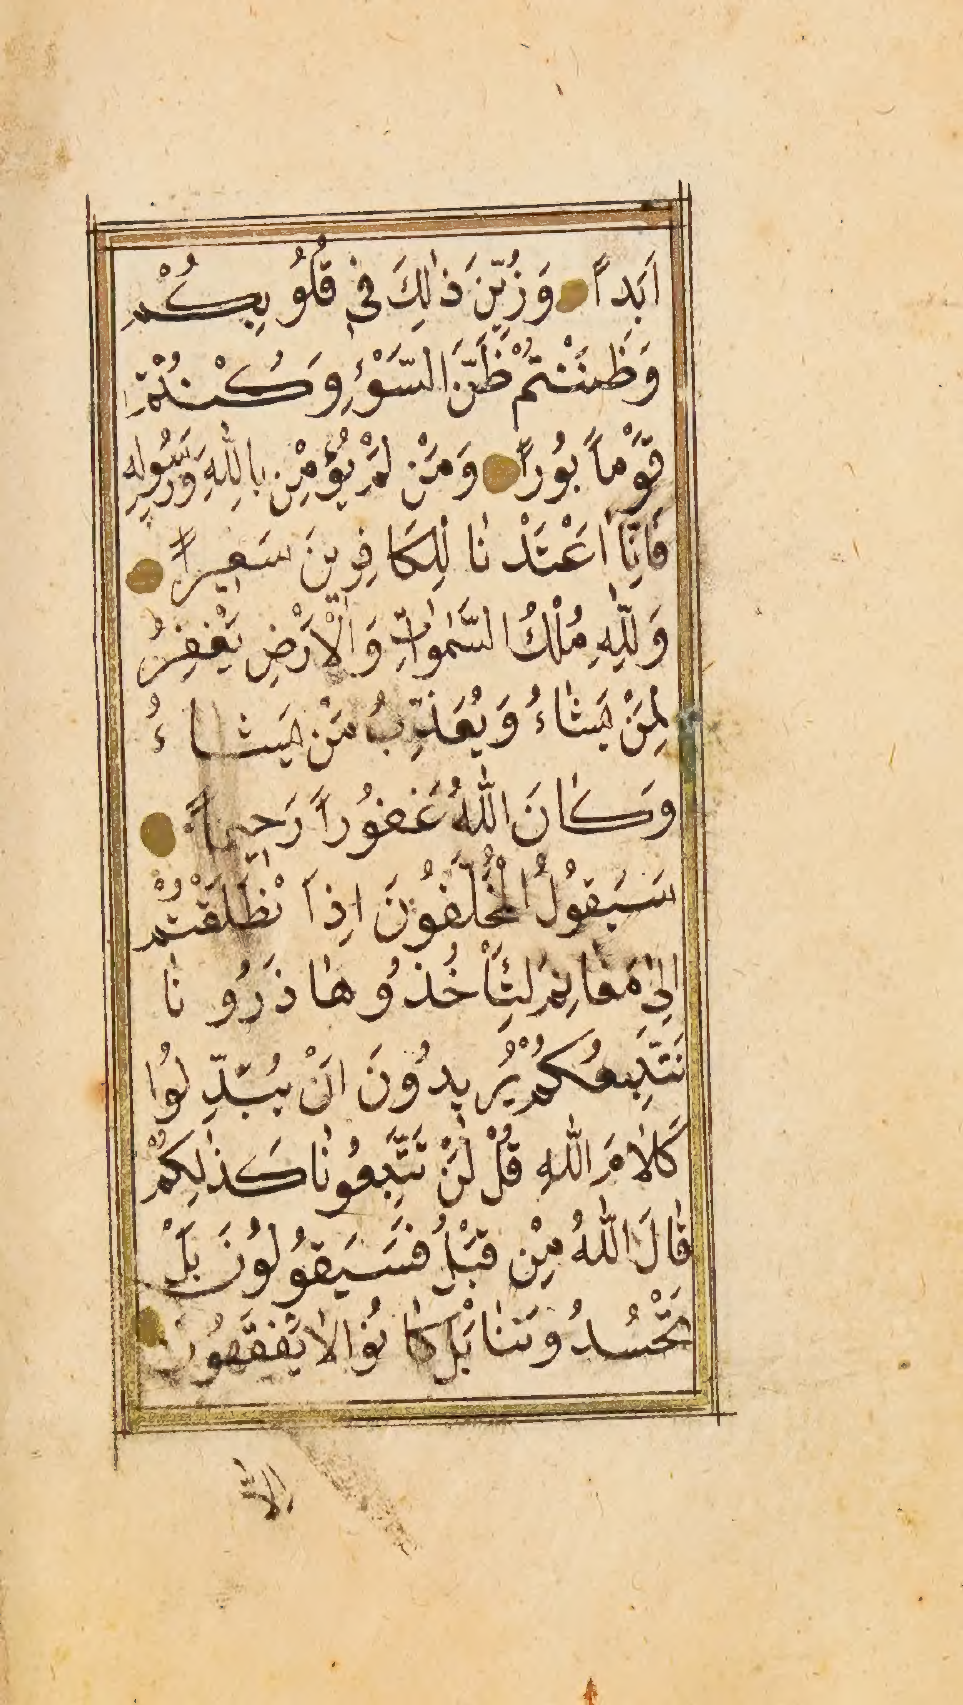 اَبَداً وَزُيِّنَ ذٰلِكَ فِى قُلُوبِكُمْ
وَظَنَنْتُمْ ظَنَّ السَّوْءِ وَكُنْتُمْ
قَوْماً بُوراً وَمَنْ لَمْ يُؤْمِنْ بِاللّٰهِ وَرَسُولِهِ
فَاِنَّا اَعْتَدْنَا لِلْكَافِرِينَ سَعِيراً
وَلِلّٰهِ مُلْكُ السَّمٰوَاتِ وَالْاَرْضِ يَغْفِرُ
لِمَنْ يَشَاءُ وَيُعَذِّبُ مَنْ يَشَاءُ
وَكَانَ اللّٰهُ غَفُوراً رَحِيماً
سَيَقُولُ الْمُخَلَّفُونَ اِذَا نْطَلَقْتُمْ
اِلٰى مَغَانِمَ لِتَأْخُذُوهَا ذَرُونَا
نَتَّبِعْكُمْ يُرِيدُونَ اَنْ يُبَدِّلُوا
كَلَامَ اللّٰهِ قُلْ لَنْ تَتَّبِعُونَا كَذٰلِكُمْ
قَالَ اللّٰهُ مِنْ قَبْلُ فَسَيَقُولُونَ بَلْ
تَحْسُدُونَنَا بَلْ كَانُوا لَا يَفْقَهُونَ
الا